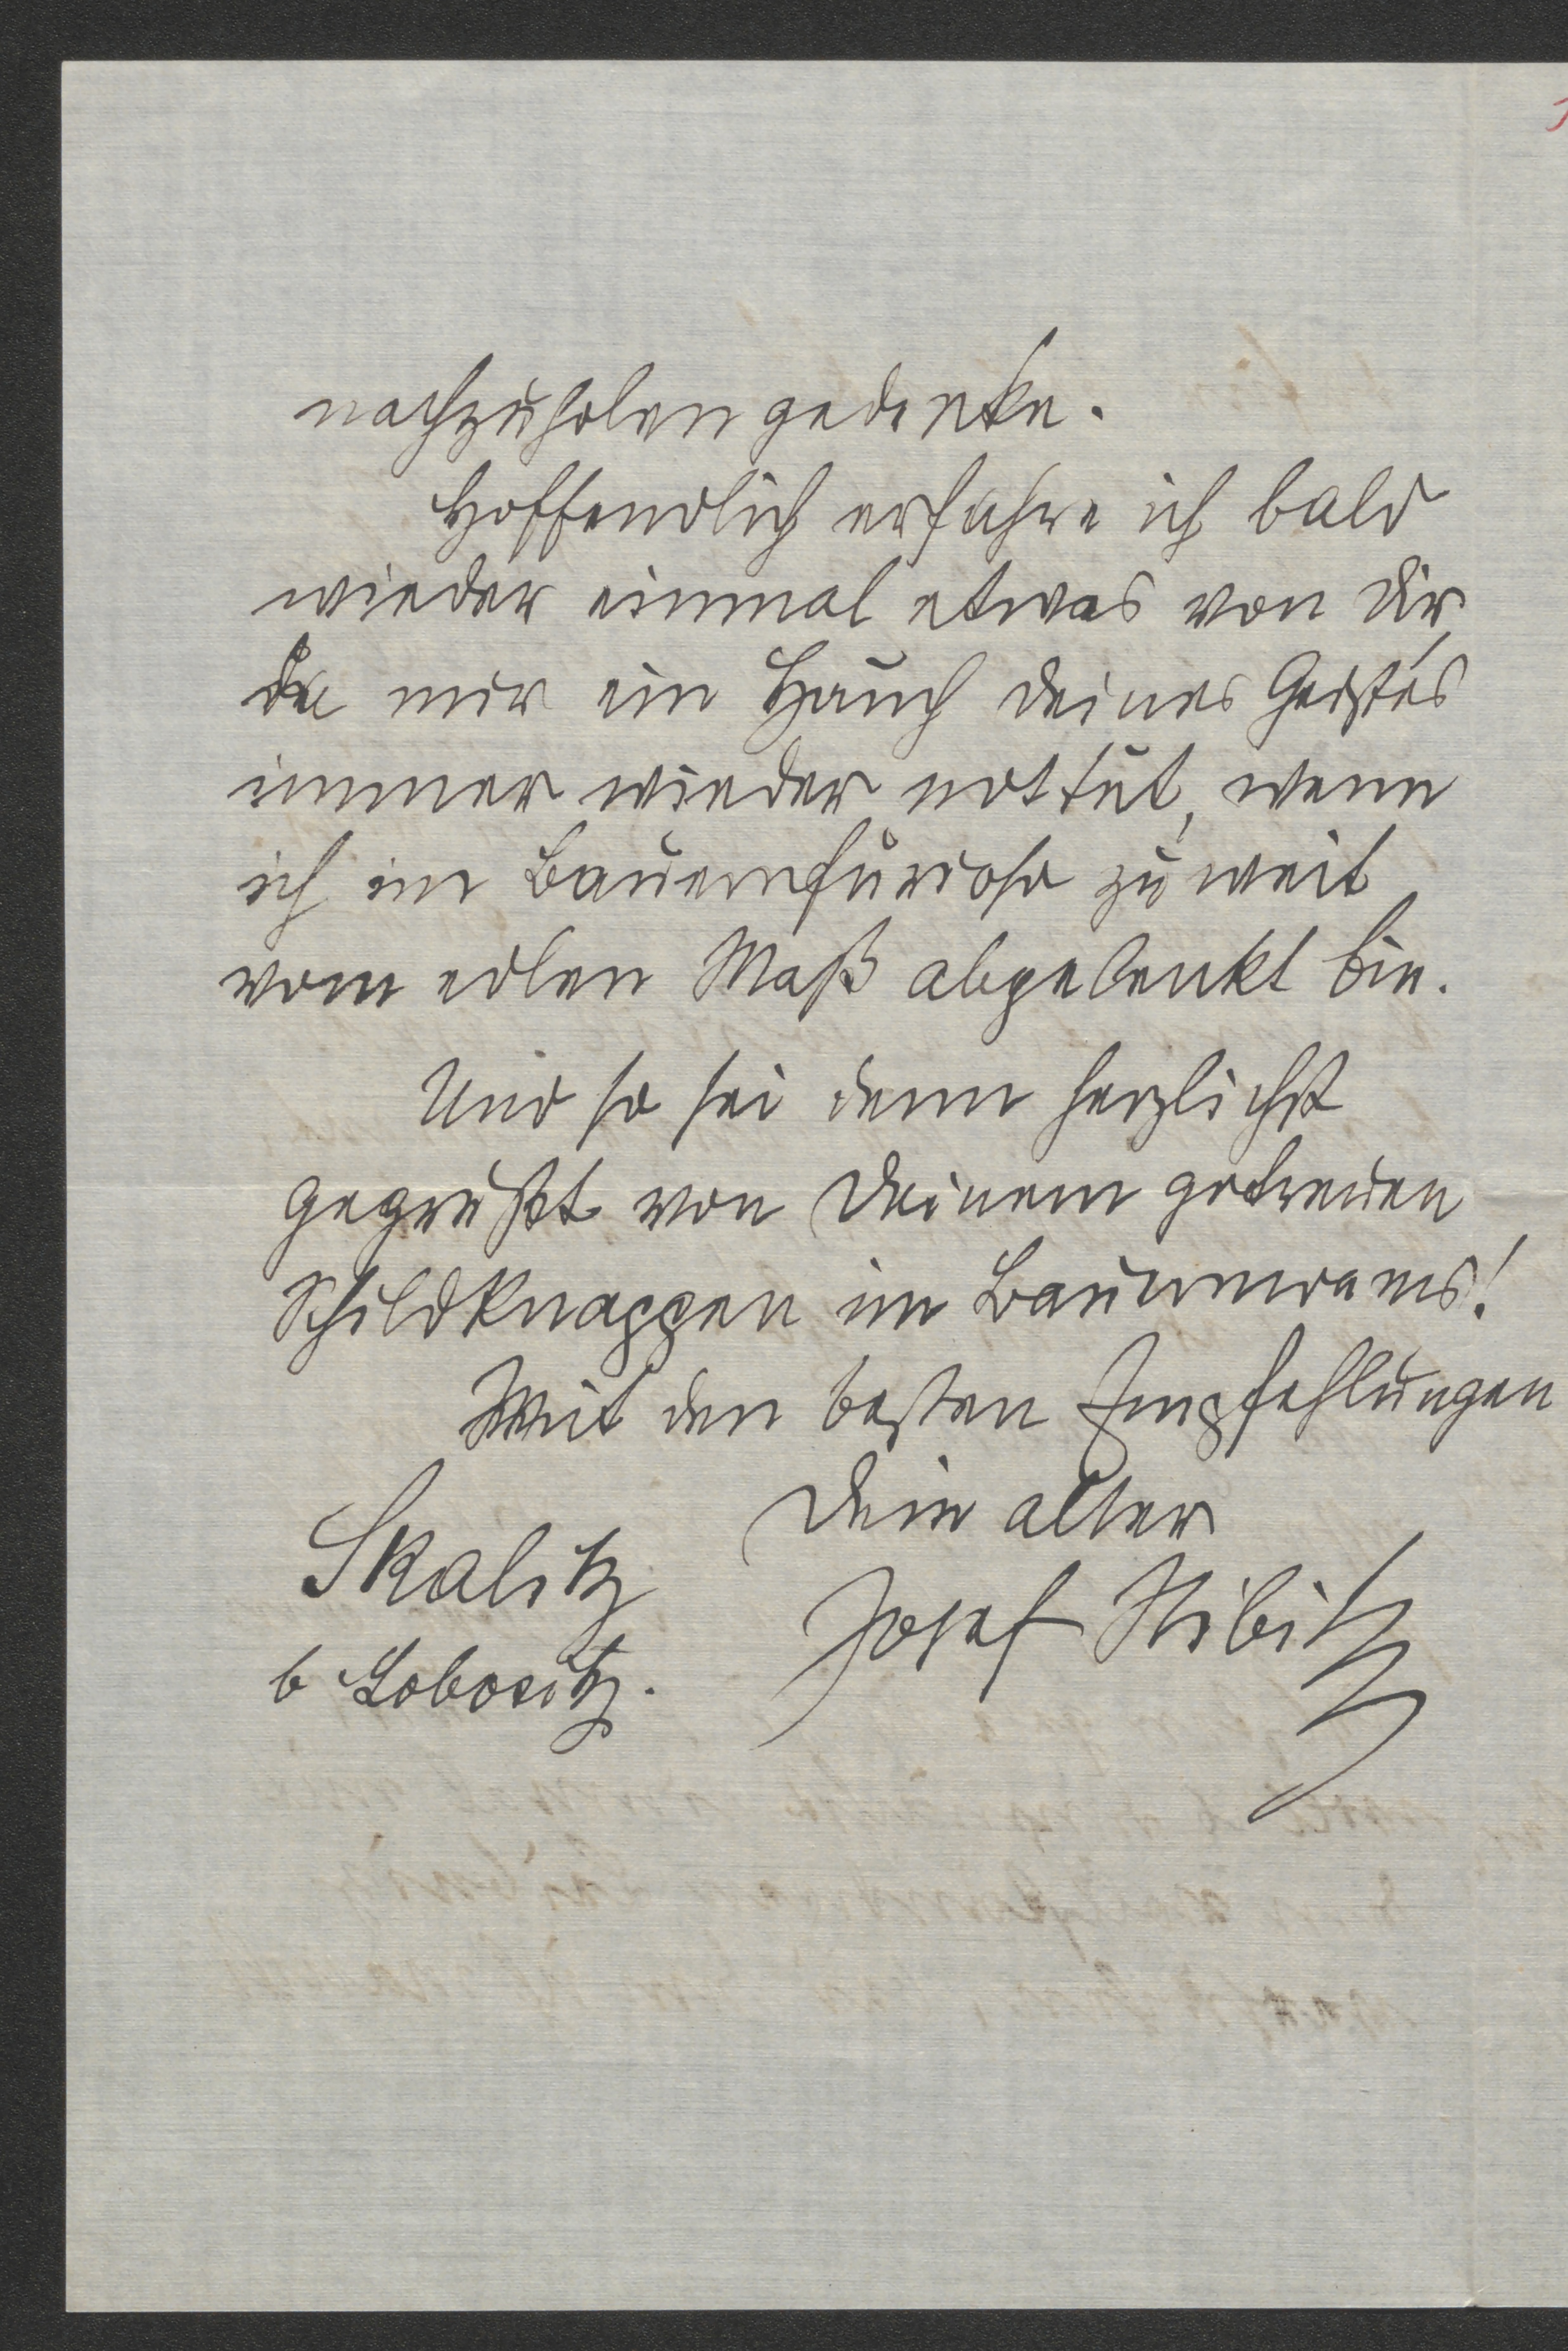 nachzuholen gedenke.
Hoffendlich erfahre ich bald
wieder einmal etwas von Dir,
da mir ein Hauch deines Geistes
immer wieder nottut, wenn
ich im Bauernfurioso zu weit
vom edlen Maß abgelenkt bin.
Und so sei denn herzlichst
gegrüßt von Deinem getreuen
Schildknappen im Bauernwams!
Mit den besten Empfehlungen
Dein alter
Skalitz Josef Stibitz
b Lobositz.